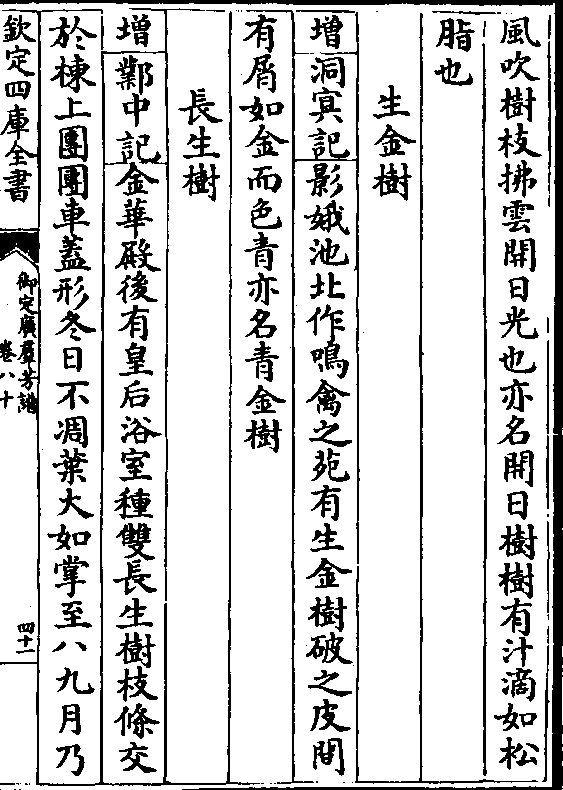 風吹樹枝拂雲開日光也亦名開日樹樹有汁滴如松
脂也
生金樹
增洞㝠記影娥池北作鳴禽之苑有生金樹破之皮間
有屑如金而色青亦名青金樹
長生樹
增鄴中記金華殿後有皇后浴室種雙長生樹枝條交
於棟上團團車蓋形冬日不凋葉大如掌至八九月乃
欽定四庫全書
御定廣羣芳譜
卷八十
四十一